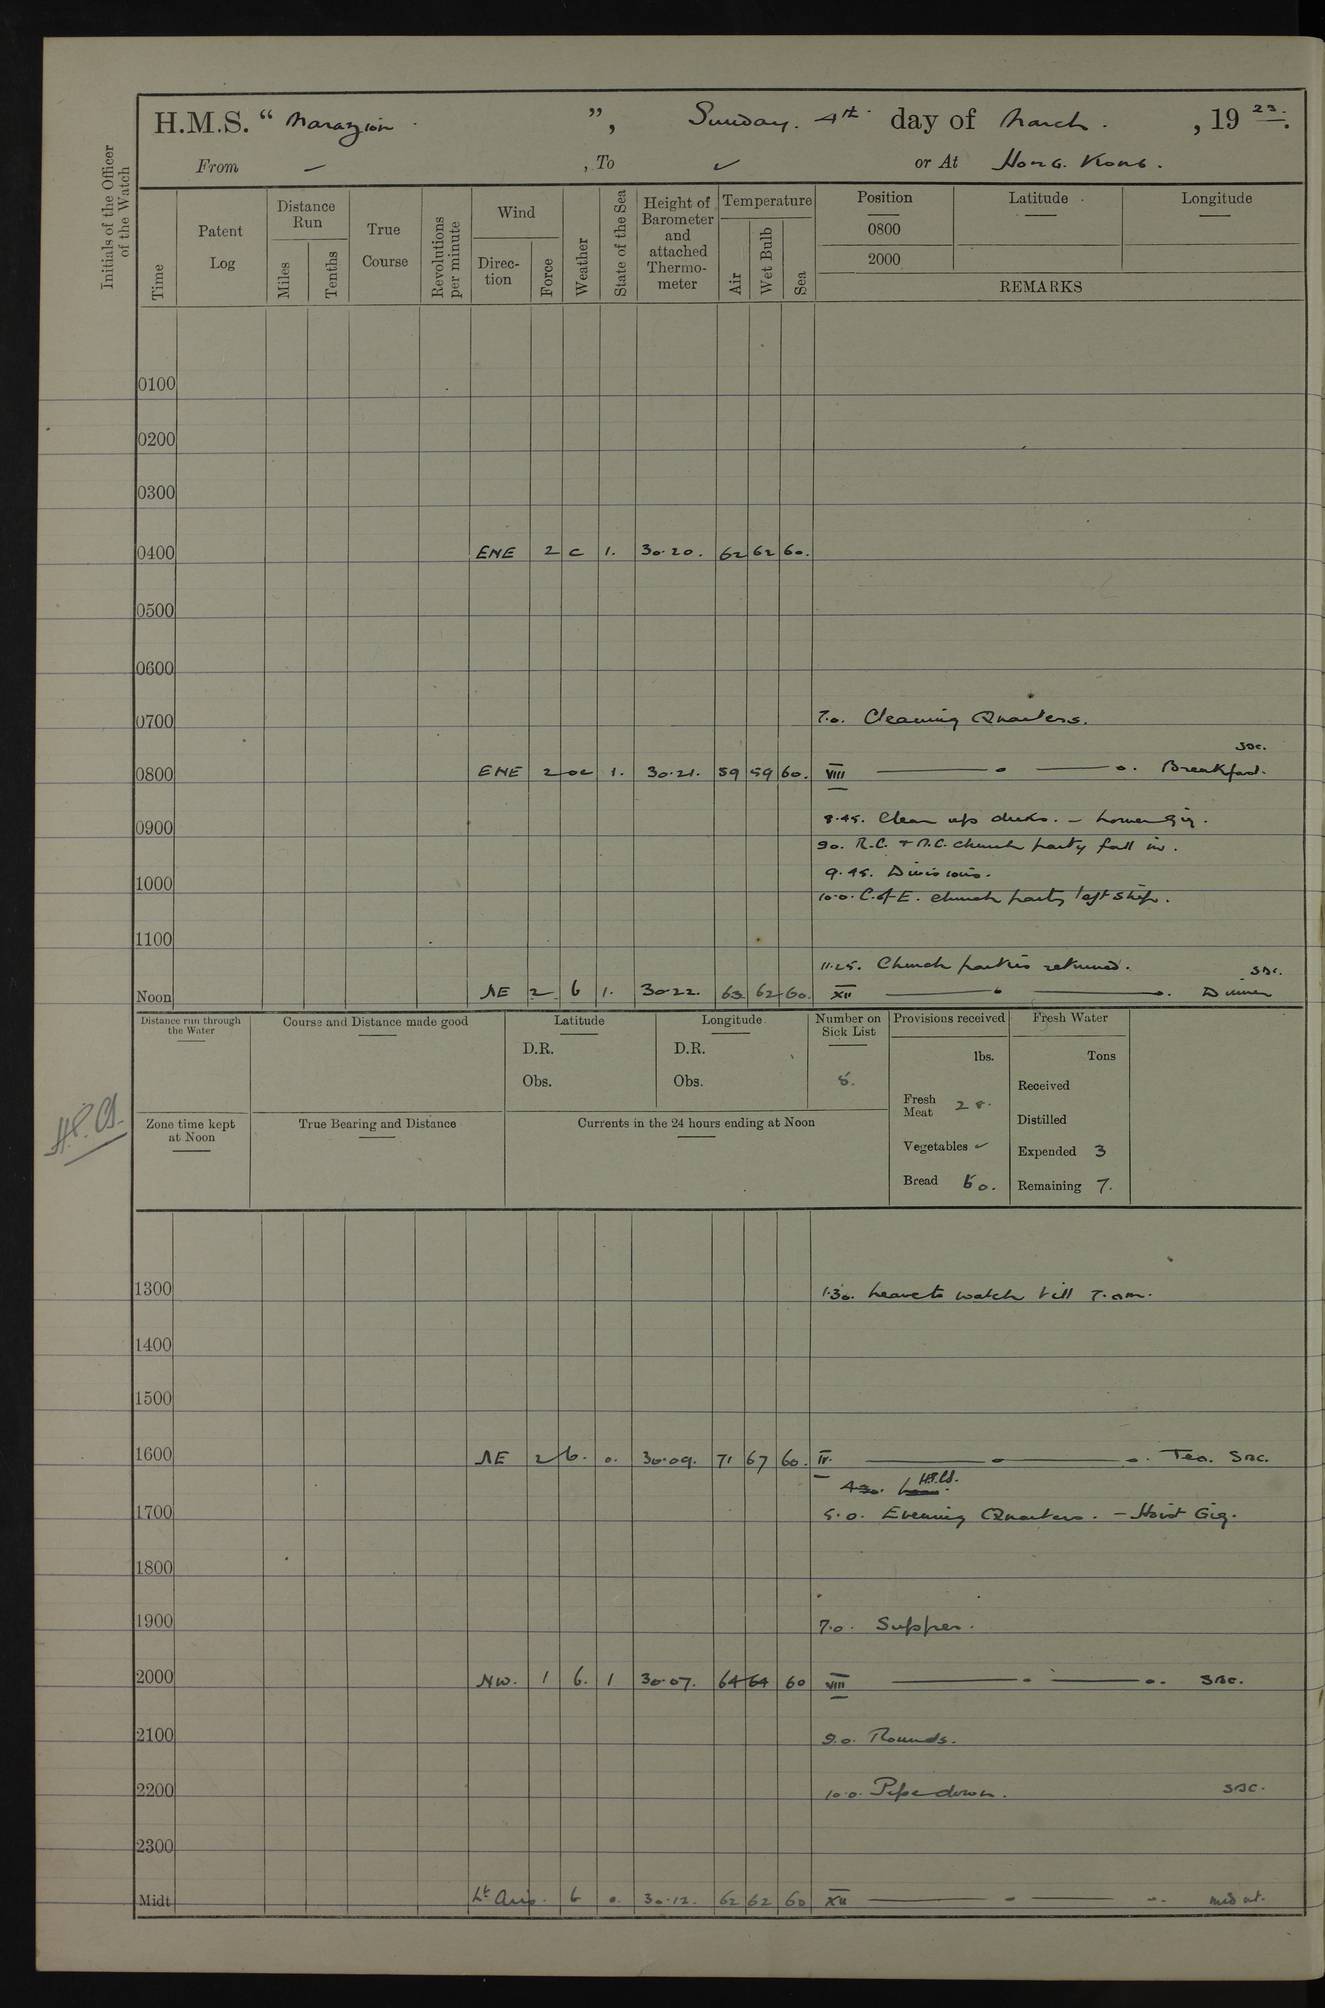 H.M.S. “ Marazion ”, Sunday. 4th day of March. , 19 23.
From — , To ✓ or At Hong. Kong.
Initials of the Officer of the Watch
Time
Patent Log
Distance Run
Miles
Tenths
True Course
Revolutions per minute
Wind
Direc- tion
Force
Weather
State of the Sea
Height of Barometer and attached Thermo- meter
Temperature
Air
Wet Bulb
Sea
Position
0800
2000
Latitude
Longitude
REMARKS
0100
0200
0300
0400 ENE 2 c 1. 30.20. 62 62 60.
0500
0600
0700 7.0. Cleaning Quarters.
SBC.
0800 ENE 2 oc 1. 30.21. 59 59 60. VIII Breakfast.
8.45. Clear up decks. – Lower Gig.
0900
9.0. R.C. + N.C. church party fall in.
9.45. Divisions.
1000
10.0. C. of E. church party left ship.
1100
11.25. Church parties returned. SBC.
Noon NE 2 b 1. 30.22. 63 62 60. XII Dinner
Distance run through the Water
Course and Distance made good
Latitude
D.R.
Obs.
Longitude
D.R.
Obs.
Number on Sick List
5.
Provisions received
lbs.
Fresh Meat 28.
Vegetables ✓
Bread 60.
Fresh Water
Tons
Received
Distilled
Expended 3
Remaining 7.
Zone time kept at Noon
True Bearing and Distance
Currents in the 24 hours ending at Noon
1300 1.30. Leave to watch till 7. am.
1400
1500
1600 NE 2 b. 0. 30.09. 71 67 60. IV. Tea. SBC.
4.30.
1700 5.0. Evening Quarters. – Hoist Gig.
1800
1900 7.0. Supper.
2000 NW. 1 b. 1 30.07. 64 64 60 VIII SBC.
2100 9.0. Rounds.
2200 10.0. Pipe down. SBC.
2300
Midt Lt Airs. b 0. 30.12. 62 62 60 XII